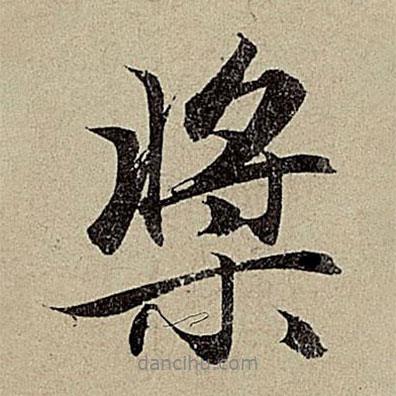 槳
dancihu.com